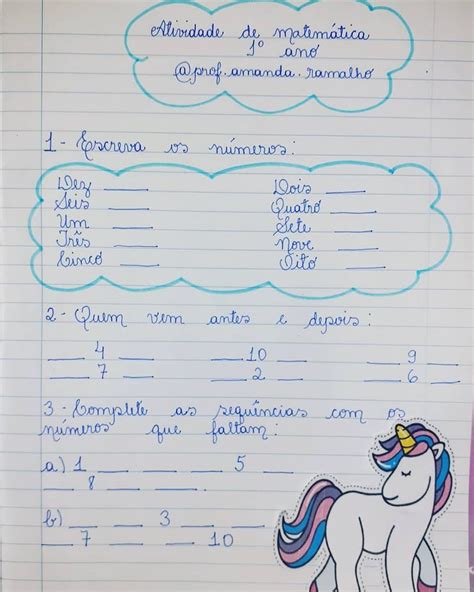 Atividade de matemática
1º ano
@prof.amanda.ramalho
1- Escreva os números:
Dez ____ Dois ____
Seis ____ Quatro ____
Um ____ Sete ____
Três ____ Nove ____
Cinco ____ Oito ____
2- Quem vem antes e depois:
___ 4 ___ ___ 10 ___ ___ 9 ___
___ 7 ___ ___ 2 ___ ___ 6 ___
3- Complete as sequências com os
números que faltam:
a) 1 ___ ___ ___ 5 ___
___ 8 ___ ___
b) ___ ___ 3 ___ ___
___ 7 ___ ___ 10